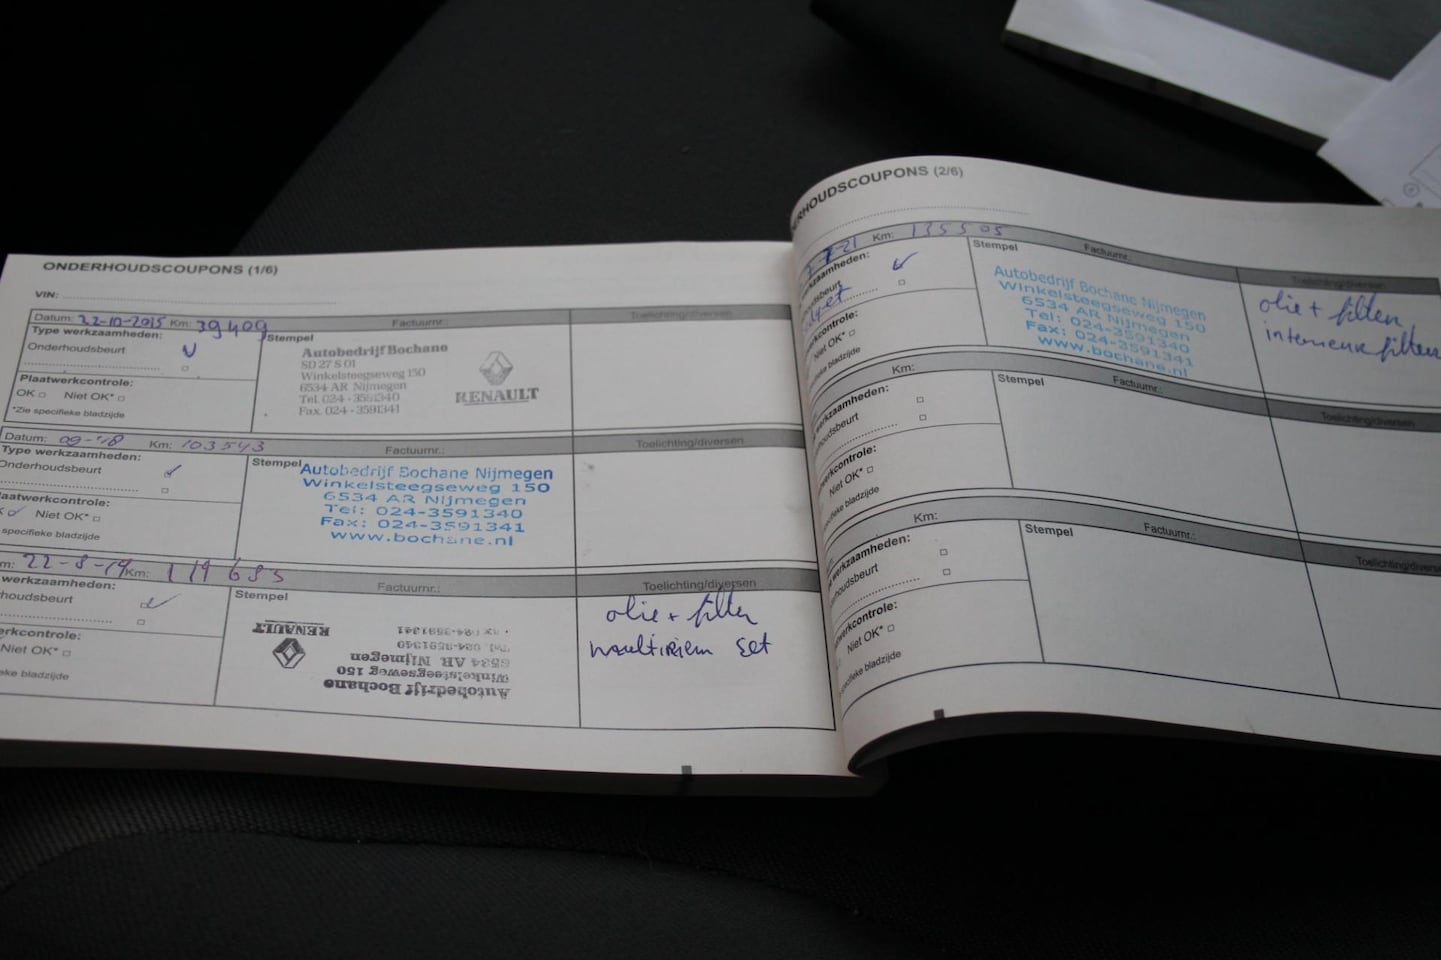 ONDERHOUDSCOUPONS (1/6)
VIN:
Datum: 22-10-2015 Km: 39409 Factuurnr.: Toelichting/diversen
Type werkzaamheden:
Onderhoudsbeurt
Plaatwerkcontrole:
OK Niet OK*
*Zie specifieke bladzijde
Stempel
Autobedrijf Bochane
SD 27 S 01
Winkelsteegseweg 150
6534 AR Nijmegen
Tel. 024 - 3591340
Fax. 024 - 3591341
RENAULT
Datum: 09-'18 Km: 103543 Factuurnr.: Toelichting/diversen
Type werkzaamheden:
Onderhoudsbeurt
laatwerkcontrole:
Niet OK*
specifieke bladzijde
Stempel
Autobedrijf Bochane Nijmegen
Winkelsteegseweg 150
6534 AR Nijmegen
Tel: 024-3591340
Fax: 024-3591341
www.bochane.nl
m: 22-8-19 Km: 119685 Factuurnr.: Toelichting/diversen
werkzaamheden:
rhoudsbeurt
erkcontrole:
Niet OK*
bladzijde
Stempel
Autobedrijf Bochane
Winkelsteegseweg 150
6534 AR Nijmegen
Tel. 024-3591340
024-3591341
RENAULT
olie + filter
multiriem set
RHOUDSCOUPONS (2/6)
7-21 Km: 135505 Factuurnr.: Toelichting/diversen
rkzaamheden:
oudsbeurt
kcontrole:
Niet OK*
bladzijde
Stempel
Autobedrijf Bochane Nijmegen
Winkelsteegseweg 150
6534 AR Nijmegen
Tel: 024-3591340
Fax: 024-3591341
www.bochane.nl
olie + filter,
interieur filter
Km: Factuurnr.: Toelichting/diversen
werkzaamheden:
houdsbeurt
rkcontrole:
Niet OK*
specifieke bladzijde
Stempel
Km: Factuurnr.: Toelichting/diversen
werkzaamheden:
houdsbeurt
werkcontrole:
Niet OK*
specifieke bladzijde
Stempel